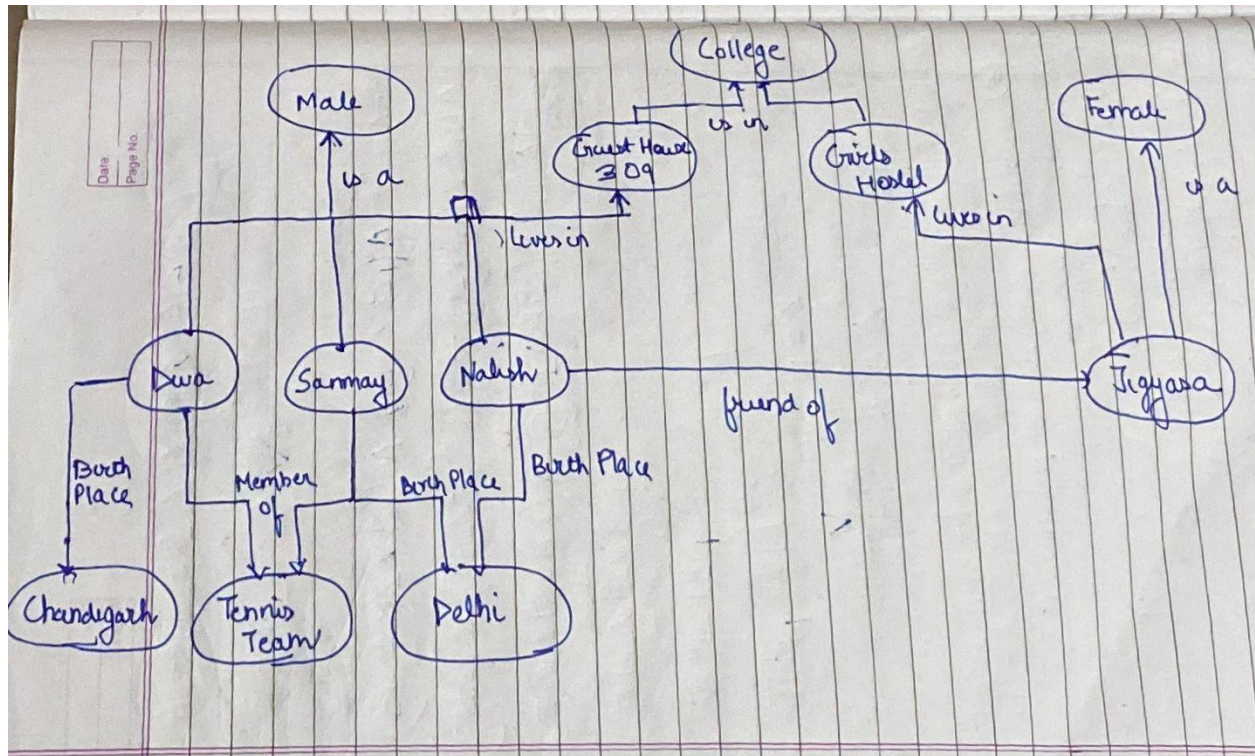 Date
Page No.
College
Male
Female
is in
Guest House
309
Girls
Hostel
is a
is a
lives in
lives in
Diva
Sanmay
Jigyasa
friend of
Birth
Place
Member
of
Birth Place
Birth Place
Chandigarh
Tennis
Team
Delhi